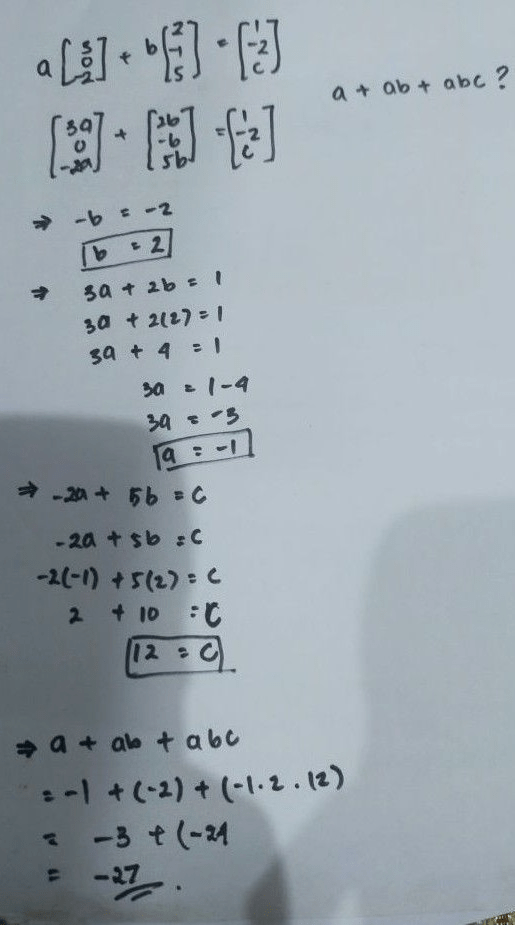 a [3 0 -2] + b [2 -1 5] = [1 -2 c]
a + ab + abc ?
[3a 0 -2a] + [2b -b 5b] = [1 -2 c]
⇒ -b = -2
b = 2
⇒ 3a + 2b = 1
3a + 2(2) = 1
3a + 4 = 1
3a = 1-4
3a = -3
a = -1
⇒ -2a + 5b = c
-2a + 5b = c
-2(-1) + 5(2) = c
2 + 10 = c
12 = c
⇒ a + ab + abc
= -1 + (-2) + (-1.2.12)
= -3 + (-24
= -27.